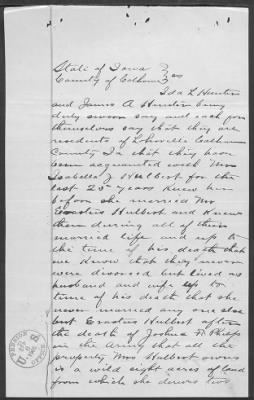 State of Iowa
County of Calhoun } ss
Ida L Hunter
and James A Hunter being
duly sworn say and each for
themselves say that they are
residents of Lohrville Calhoun
County Ia that they have
been acquainted with Mrs
Isabella J Hulbert for the
last 25 years knew her
before she married Mr
Erastus Hulbert and knew
them during all of their
married life and up to
the time of his death that
we know that they never
were divorced but lived as
husband and wife up to
time of his death that she
never married any one else
but Erastus Hulbert after
the death of Joshua N
in the Army that all the
property Mrs Hulbert owns
is a wild eight acres of land
from which she derives two
PENSION OFFICE
U.S.